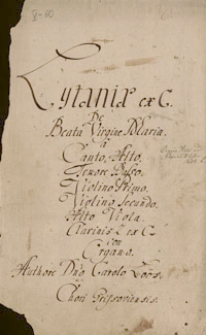 Lytaniæ ex C.
De
Beata Virgine Maria.
à
Canto, Alto,
Tenore Basso.
Violino Primo.
Violino Secundo.
Alto Viola.
Clarinis 2 ex C.
con
Organo.
Authore Dno Carolo
Chori